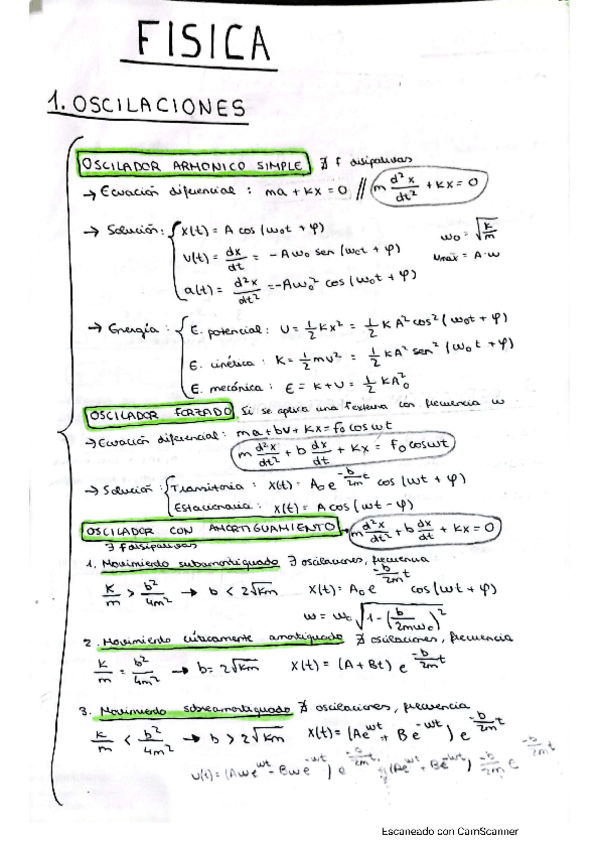 FISICA
1. OSCILACIONES
OSCILADOR ARMONICO SIMPLE ∄ F disipativas
→ Ecuación diferencial : ma + kx = 0 // m d²x/dt² + kx = 0
→ Solución: x(t) = A cos (ω₀t + φ)
v(t) = dx/dt = -Aω₀ sen (ω₀t + φ)
ω₀ = √(k/m)
vmax = A·ω
a(t) = d²x/dt² = -Aω₀² cos (ω₀t + φ)
→ Energía: E. potencial: U = 1/2 kx² = 1/2 kA² cos² (ω₀t + φ)
E. cinética : K = 1/2 mv² = 1/2 kA² sen² (ω₀t + φ)
E. mecánica : E = K+U = 1/2 kA₀²
OSCILADOR FORZADO Si se aplica una Fexterna con frecuencia ω
→ Ecuación diferencial: ma + bv + kx = F₀ cos ωt
m d²x/dt² + b dx/dt + kx = F₀ cosωt
→ Solución: Transitoria : x(t) = A₀ e^(-b/2m t) cos (ωt + φ)
Estacionaria : x(t) = A cos (ωt - φ)
OSCILADOR CON AMORTIGUAMIENTO → m d²x/dt² + b dx/dt + kx = 0
∃ F disipativas
1. Movimiento subamortiguado ∃ oscilaciones, frecuencia
k/m > b²/4m² → b < 2√km x(t) = A₀ e^(-b/2m t) cos (ωt + φ)
ω = ω₀ √(1 - (b/2mω₀)²)
2. Movimiento críticamente amortiguado ∄ oscilaciones, frecuencia
k/m = b²/4m² → b = 2√km x(t) = (A + Bt) e^(-b/2m t)
3. Movimiento sobreamortiguado ∄ oscilaciones, frecuencia
k/m < b²/4m² → b > 2√km x(t) = (Ae^(ωt) + Be^(-ωt)) e^(-b/2m t)
v(t) = (Aωe^(ωt) - Bωe^(-ωt)) e^(-b/2m t) (Ae^(ωt) + Be^(-ωt)) -b/2m e^(-b/2m t)
Escaneado con CamScanner